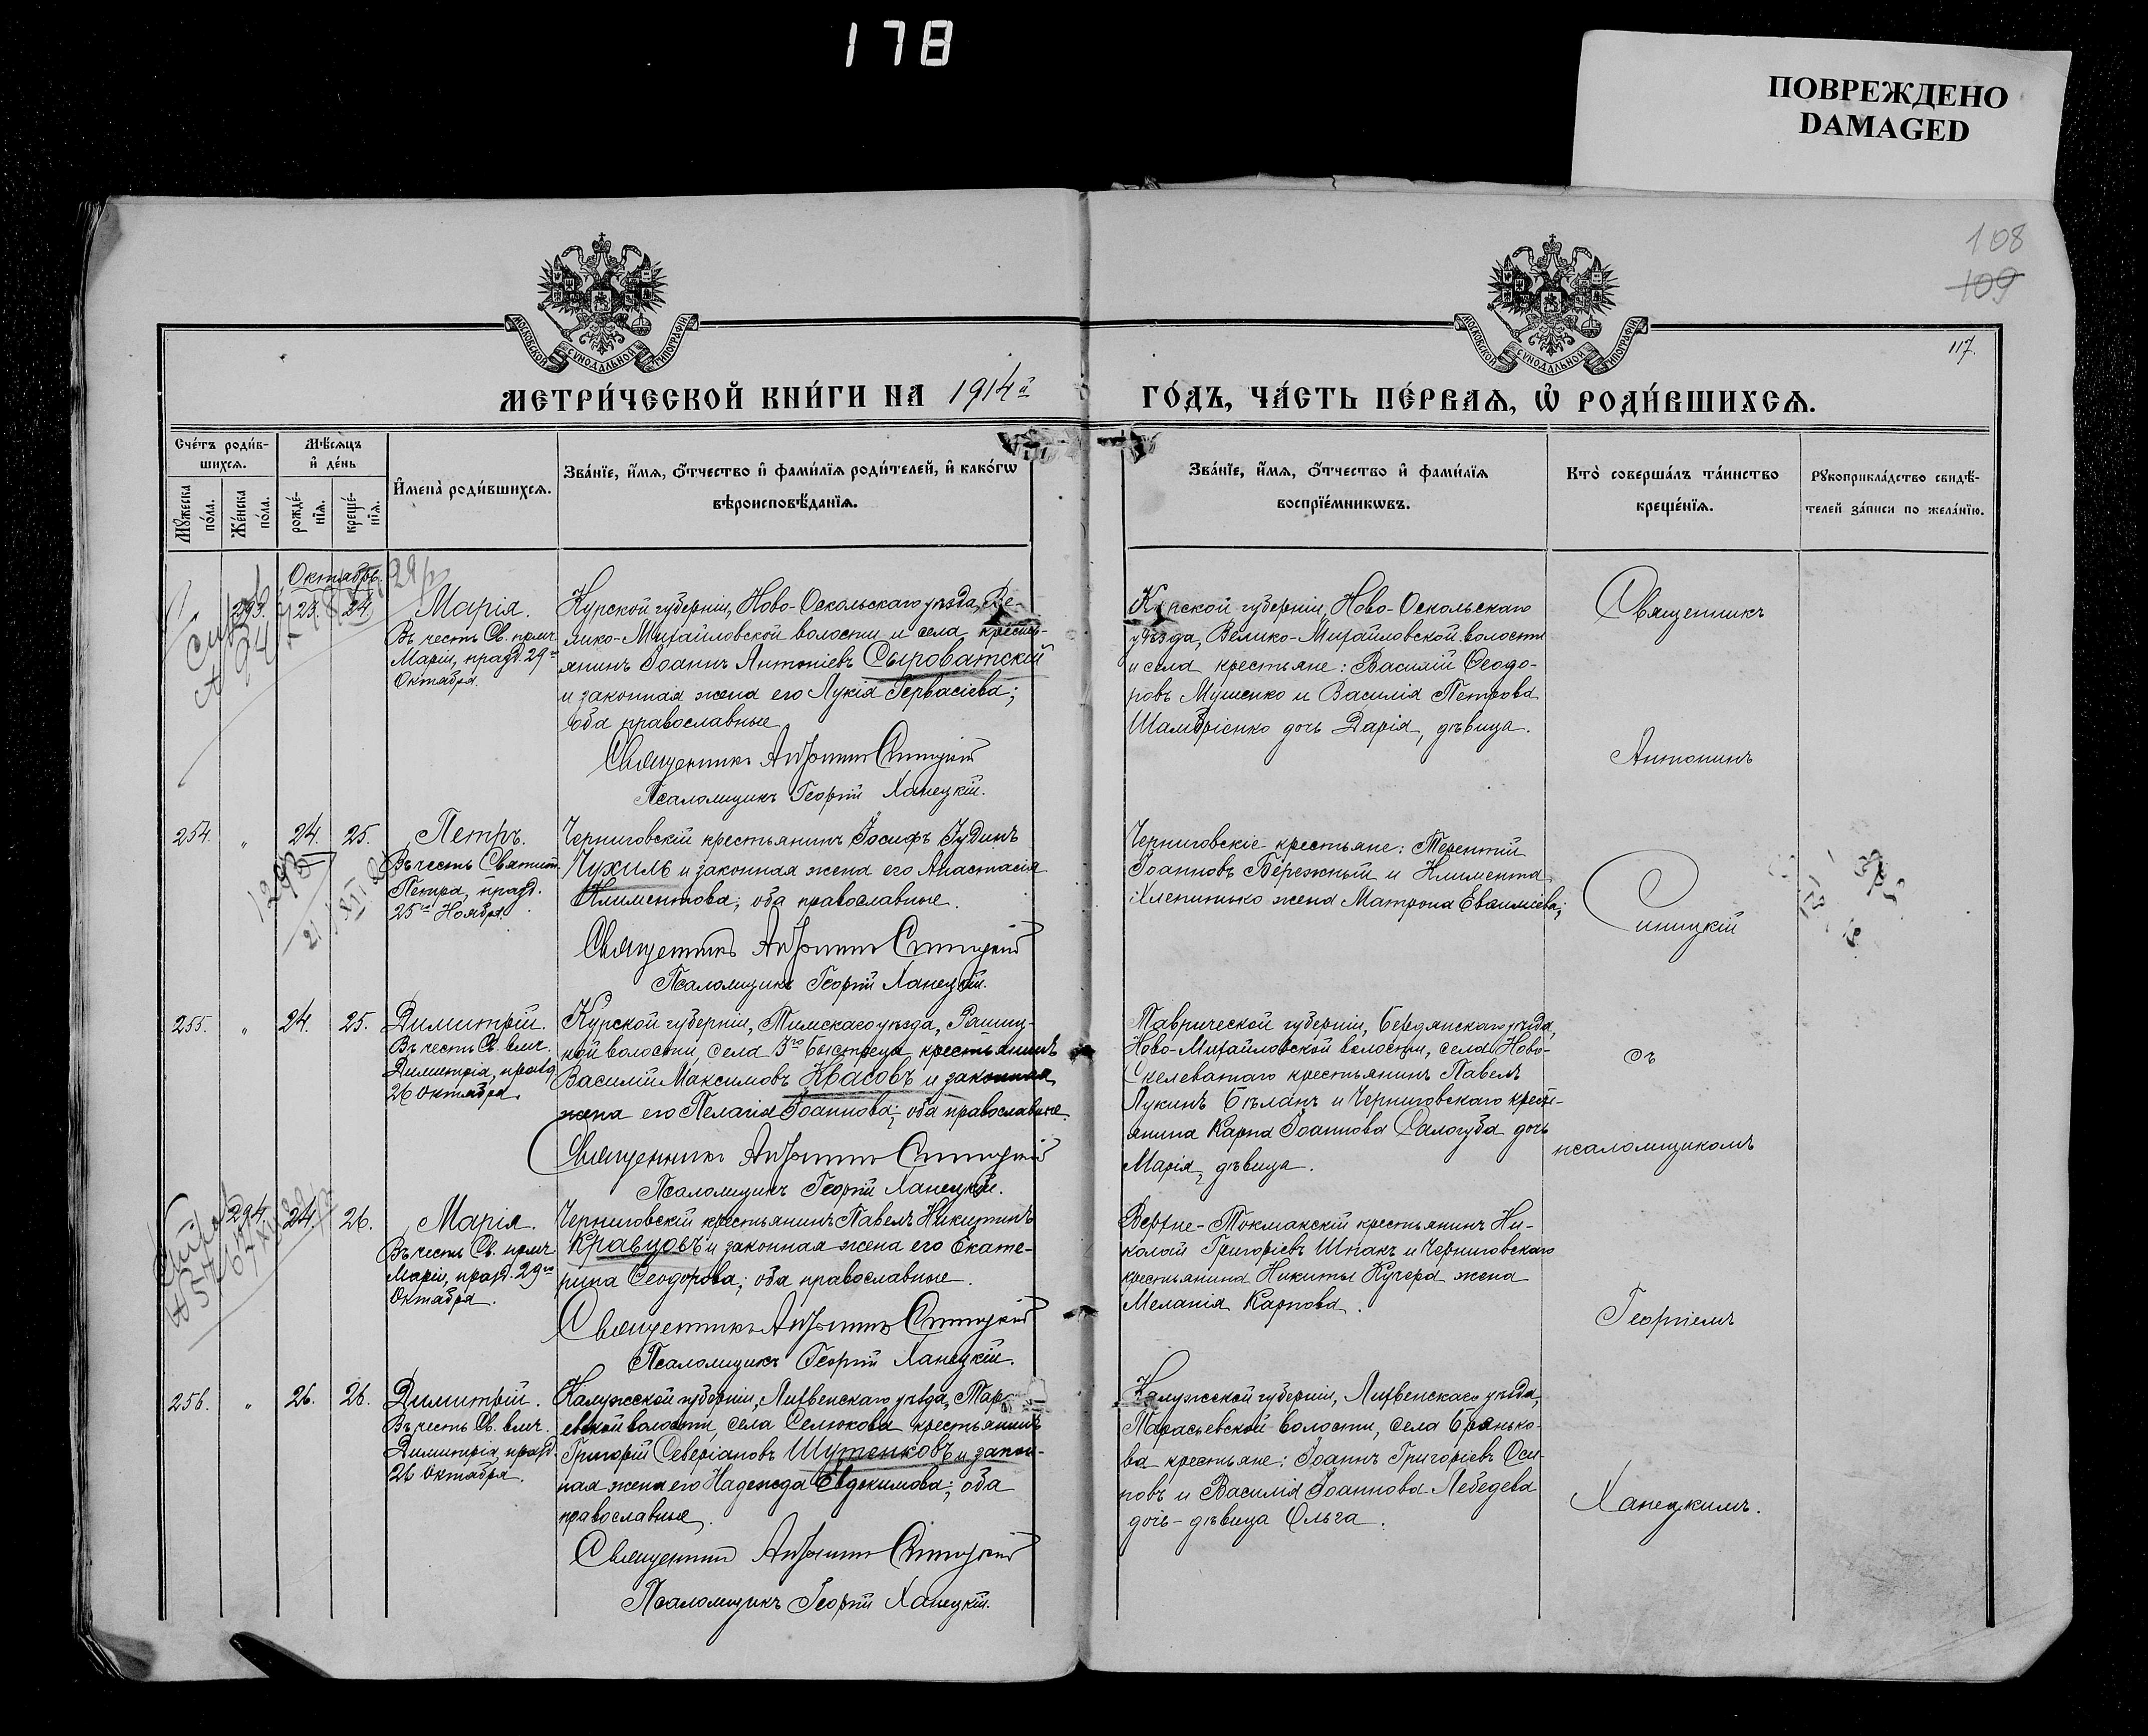 178
ПОВРЕЖДЕНО
DAMAGED
108
109
117.
МОСКОВСКОЙ СѴНОДАЛЬНОЙ ТИПОГРАФІИ
МОСКОВСКОЙ СѴНОДАЛЬНОЙ ТИПОГРАФІИ
МЕТРИ́ЧЕСКОЙ КНИ́ГИ НА 1914й
ГО́ДЪ, ЧА́СТЬ ПЕ́РВАѦ, Ѡ҆ РОДИ́ВШИХСѦ.
Сче́тъ роди́в-
шихсѧ.
Мѣ́сѧцъ
и҆ де́нь
Мꙋ́жеска
по́ла.
Же́нска
по́ла.
рожде́-
нїѧ.
креще́-
нїѧ.
И҆мена̀ роди́вшихсѧ.
Зва́нїе, и҆́мѧ, ѻ҆́тчество и҆ фами́лїѧ роди́телей, и҆ како́гѡ
вѣроисповѣ́данїѧ.
Зва́нїе, и҆́мѧ, ѻ҆́тчество и҆ фами́лїѧ
воспрїе́мникѡвъ.
Кто̀ соверша́лъ та́инство
креще́нїѧ.
Рꙋкоприкла́дство свидѣ́-
телей за́писи по жела́нїю.
Октябрь.
293. 23. 24. Марія.
Въ честь Св. прмч.
Маріи, празд. 29го
Октября.
Курской губерніи, Ново-Оскольскаго уѣзда, Ве-
лико-Михайловской волости и села кресть-
янинъ Іоаннъ Антоніевъ Сыроватскій
и законная жена его Лукія Гервасіева;
оба православные
Священникъ Антонинъ Синицкій
Псаломщикъ Георгій Ханецкій.
Курской губерніи, Ново-Оскольскаго
уѣзда, Велико-Михайловской волости
и села крестьяне: Василій Ѳеодо-
ровъ Мушенко и Василія Петрова
дочь Дарія, дѣвица.
Священникъ
Антонинъ
254. „ 24. 25. Петръ.
Въ честь Святит.
Петра, празд.
25го Ноября.
Черниговскій крестьянинъ Іосифъ Іудинъ
Чухиль и законная жена его Анастасія
Климентова; оба православные.
Священникъ Антонинъ Синицкій
Псаломщикъ Георгій Ханецкій.
Черниговскіе крестьяне: Терентій
Іоанновъ Бережный и Климента
жена Матрона
Синицкій
255. „ 24. 25. Димитрій.
Въ честь Св. влмч.
Димитрія, празд.
26 Октября.
Курской губерніи, Тимскаго уѣзда,
кой волости, села крестьянинъ
Василій Максимовъ Красовъ и законная
жена его Пелагія Іоаннова; оба православные.
Священникъ Антонинъ Синицкій
Псаломщикъ Георгій Ханецкій.
Таврической губерніи, Бердянскаго уѣзда,
Ново-Михайловской волости, села Ново-
крестьянинъ Павелъ
Лукинъ Бѣланъ и Черниговскаго кресть-
янина Карпа Іоаннова Салогуба дочь
Марія, дѣвица.
съ
псаломщикомъ
294. 24. 26. Марія.
Въ честь Св. прмч.
Маріи, празд. 29го
Октября.
Черниговскій крестьянинъ Павелъ Никитинъ
Кравцовъ и законная жена его Екате-
рина Ѳеодорова; оба православные.
Священникъ Антонинъ Синицкій
Псаломщикъ Георгій Ханецкій.
Верхне-Токмакскій крестьянинъ Ни-
колай Григоріевъ Шпакъ и Черниговскаго
крестьянина Никиты Кучера жена
Меланія Карпова.
Георгіемъ
256. „ 26. 26. Димитрій.
Въ честь Св. влмч.
Димитрія, празд.
26 Октября.
Калужской губерніи, Лихвенскаго уѣзда,
евской волости, села Селюкова крестьянинъ
Григорій Северіановъ Шутенковъ и закон-
ная жена его Надежда Евдокимова; оба
православные.
Священникъ Антонинъ Синицкій
Псаломщикъ Георгій Ханецкій.
Калужской губерніи, Лихвенскаго уѣзда,
волости, села
ва крестьяне: Іоаннъ Григоріевъ Оси-
повъ и Василія Іоаннова Лебедева
дочь-дѣвица Ольга.
Ханецкимъ.